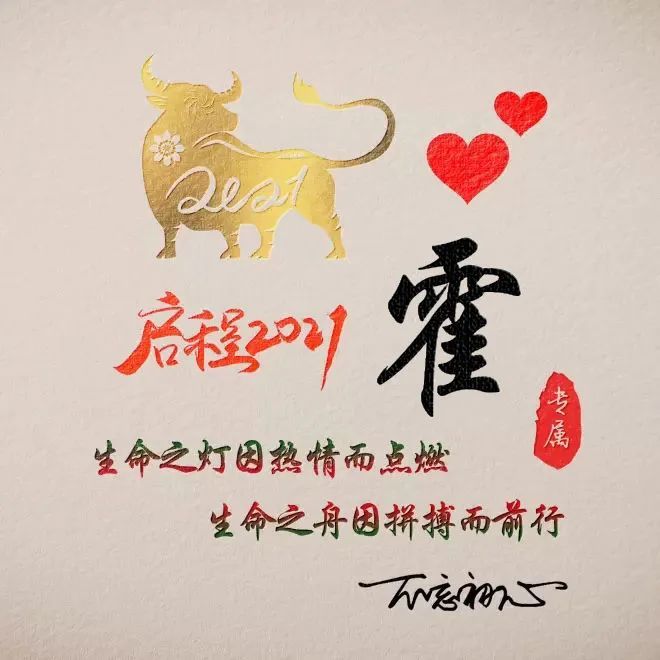 2021
启程2021
霍
专属
生命之灯因热情而点燃
生命之舟因拼搏而前行
不忘初心